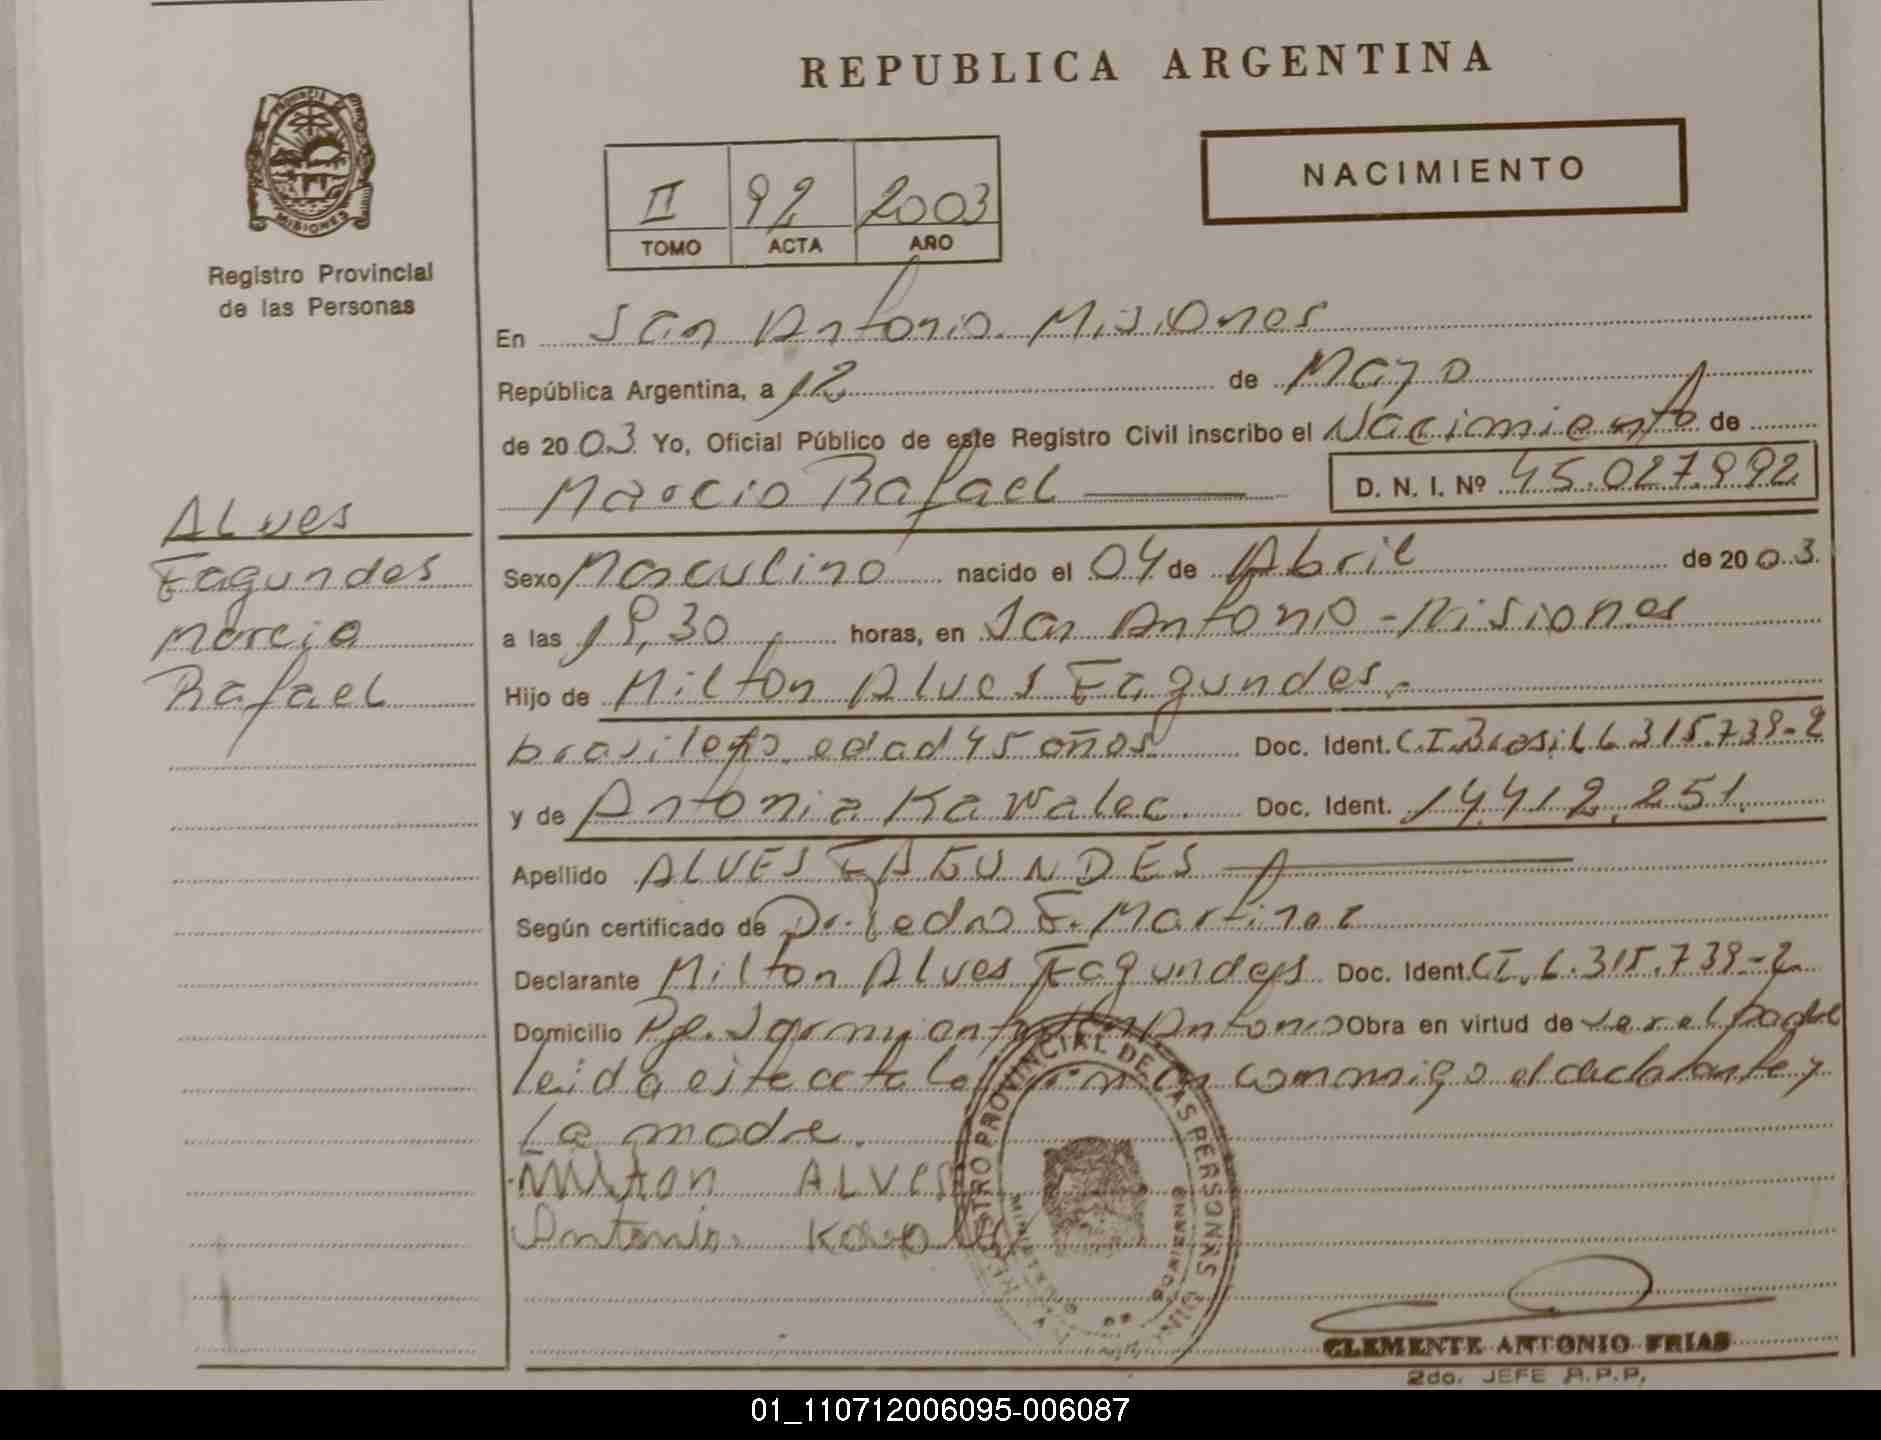 REPUBLICA ARGENTINA
PROVINCIA DE
MISIONES
Registro Provincial
de las Personas
II 92 2003
TOMO ACTA AÑO
NACIMIENTO
En San Antonio. Misiones
República Argentina, a 12 de Mayo
de 2003 Yo, Oficial Público de este Registro Civil inscribo el Nacimiento de
Marcio Rafael D. N. I. Nº 45.027.992
ALves
Fagundes
Marcio
Rafael
Sexo Masculino nacido el 04 de Abril de 2003.
a las 19,30 horas, en San Antonio - Misiones
Hijo de Milton Alves Fagundes.-
brasileño edad 45 años Doc. Ident. C.I. Brasil 6.315.739-2
y de Antonia Kawalec. Doc. Ident. 14.412.251.
Apellido ALVES FAGUNDES
Según certificado de Dr. Pedro F. Martinez
Declarante Milton Alves Fagundes Doc. Ident. CI. 6.315.739-2
Domicilio Pje. Sarmiento San Antonio Obra en virtud de ser el padre
leida este acta la firman conmmigo el declarante y
La madre.
Milton ALVES
Antonia
REGISTRO PROVINCIAL DE LAS PERSONAS
CLEMENTE ANTONIO FRIAS
2do. JEFE R.P.P.
01_110712006095-006087